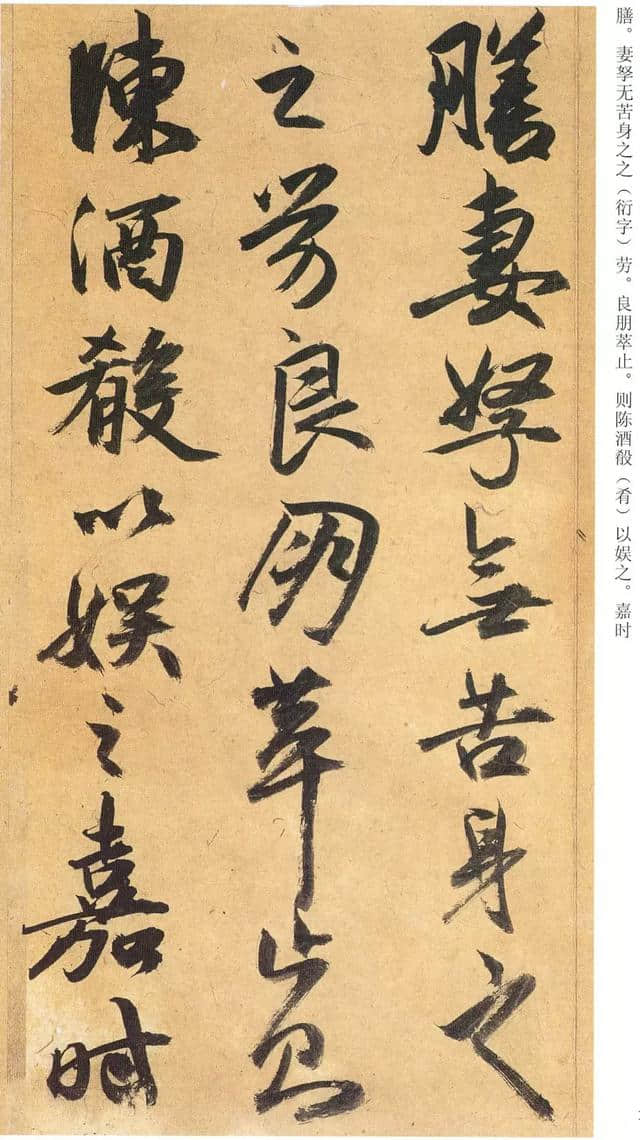 膳妻孥無苦身之
之勞良朋萃止則
陳酒餚以娯之嘉時
膳。妻孥无苦身之之（衍字）劳。良朋萃止。则陈酒殽（肴）以娱之。嘉时